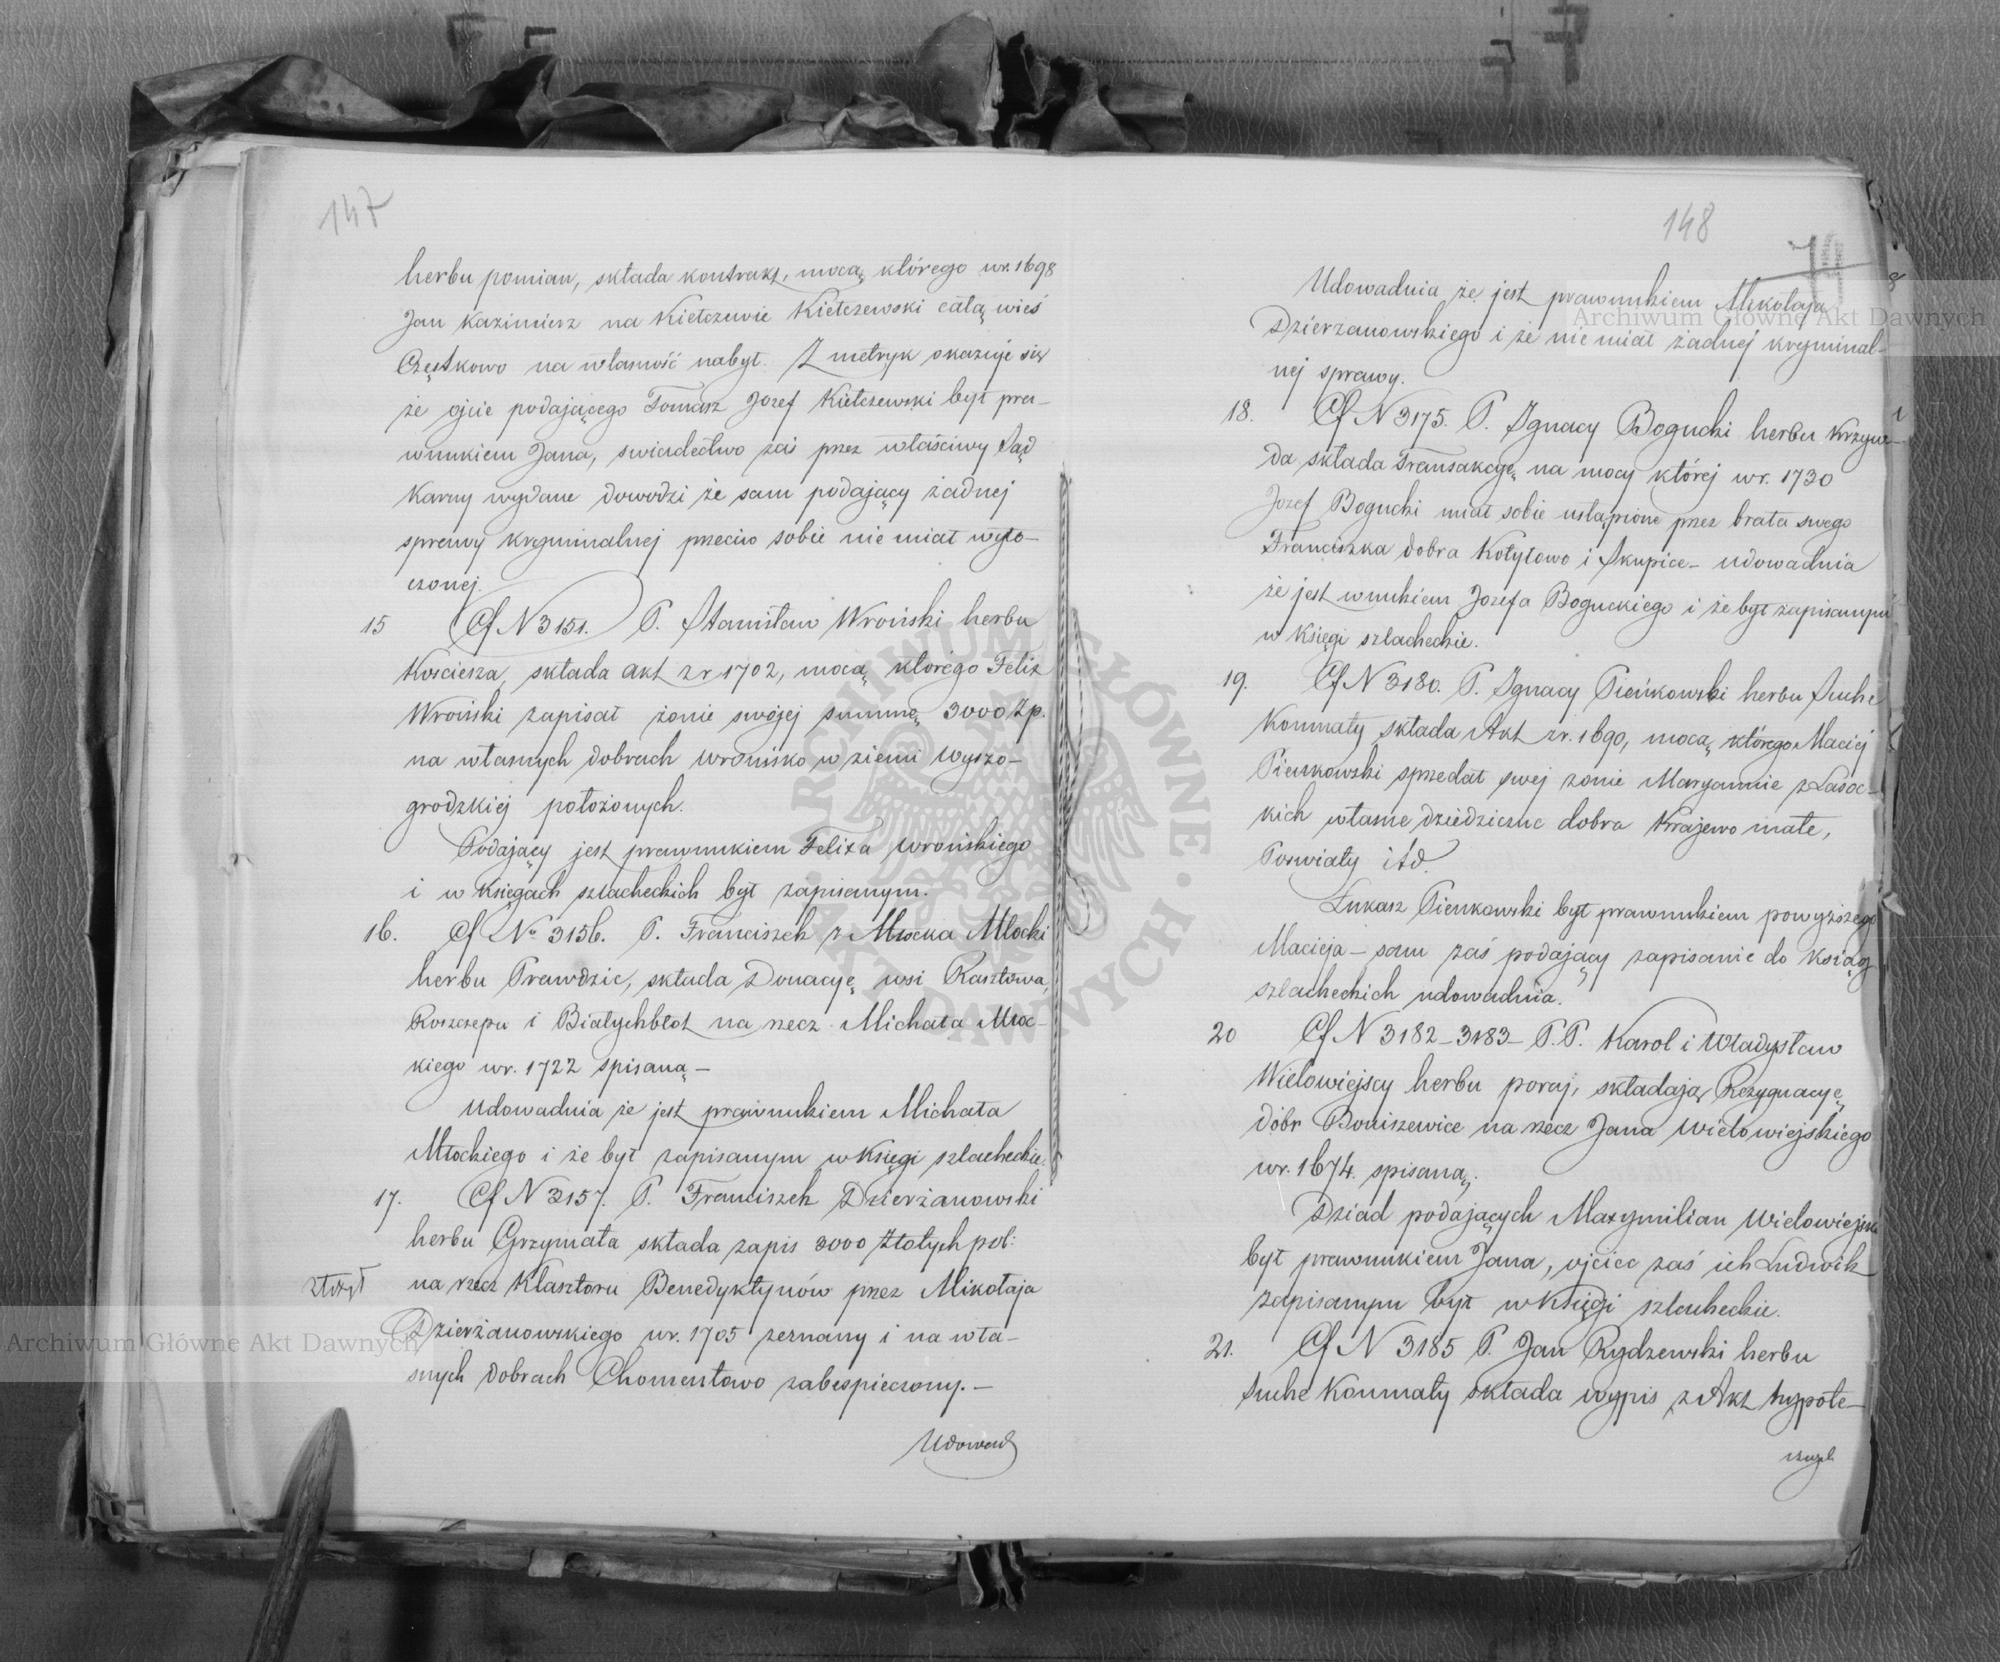 147
herbu pomian, składa kontrakt, mocą którego wr. 1698
Jan Kazimierz na Kiełczewie Kiełczewski całą wieś
Częstkowo na własność nabył. Z metryk okazuje się
że ojcie podającego Tomasz Jozef Kiełczewski był pra-
wnukiem Jana, swiadectwo zaś przez właściwy Sąd
Karny wydane dowodzi że sam podający żadnej
sprawy kryminalnej przeciw sobie nie miał wyto-
czonej.
15 Cf N 3151. P. Stanisław Wroński herbu
Kościesza, składa akt z r 1702, mocą ktorego Felix
Wroński zapisał żonie swojej summę 3000 Zp.
na własnych dobrach Wrońsko w ziemi Wyszo-
grodzkiej położonych.
Podający jest prawnukiem Felixa Wrońskiego
i w Księgach szlacheckich był zapisanym.
16. Cf No 3156. P. Franciszek z Młocka Młocki
herbu Prawdzic, składa Donacyę wsi Rasztowa,
Roszczepu i Białychbłot na rzecz Michała Młoc-
kiego wr. 1722 spisaną —
Udowadnia że jest prawnukiem Michała
Młockiego i że był zapisanym w Księgi szlacheckie.
17. Cf N 3157. P. Franciszek Dzierżanowski
herbu Grzymała składa zapis 3000 Złotych pol:
na rzecz Klasztoru Benedyktynów przez Mikołaja
Dzierżanowskiego wr. 1705 zeznany i na wła-
snych dobrach Chomentowo zabespieczony. —
Udowad
148
Udowadnia że jest prawnukiem Mikołaja
Dzierzanowskiego i że nie miał żadnej kryminal-
nej sprawy.
18. Cf N 3175. P. Ignacy Bogucki herbu Krzyw-
da składa Transakcyę na mocy której wr. 1730
Jozef Bogucki miał sobie ustąpione przez brata swego
Franciszka dobra Kotytowo i Skupice — udowadnia
że jest wnukiem Jozefa Boguckiego i że był zapisanym
w Księgi szlacheckie.
19. Cf N 3180. P. Ignacy Pieńkowski herbu Suche
Komnaty składa Akt zr. 1690, mocą którego Maciej
Pienkowski sprzedał swej zonie Maryannie z Lasoc-
kich własne dziedziczne dobra Krajewo małe,
Poswiąty itd.
Łukasz Pienkowski był prawnukiem powyższego
Macieja — sam zaś podający zapisanie do Ksiąg
szlacheckich udowadnia.
20 Cf N 3182 — 3183 — P.P. Karol i Władysław
Wielowiejscy herbu poraj, składają Rezygnacyę
dóbr Boniszewice na rzecz Jana Wielowiejskiego
wr. 1674. spisaną.
Dziad podających Maxymilian Wielowiejski
był prawnukiem Jana, ojciec zaś ich Ludwik
zapisanym był w Księgi szlacheckie.
21. Cf N 3185 P. Jan Rydzewski herbu
Suche Komnaty składa wypis z Akt hypote-
Archiwum Główne Akt Dawnych
Archiwum Główne Akt Dawnych
ARCHIWUM GŁÓWNE AKT DAWNYCH